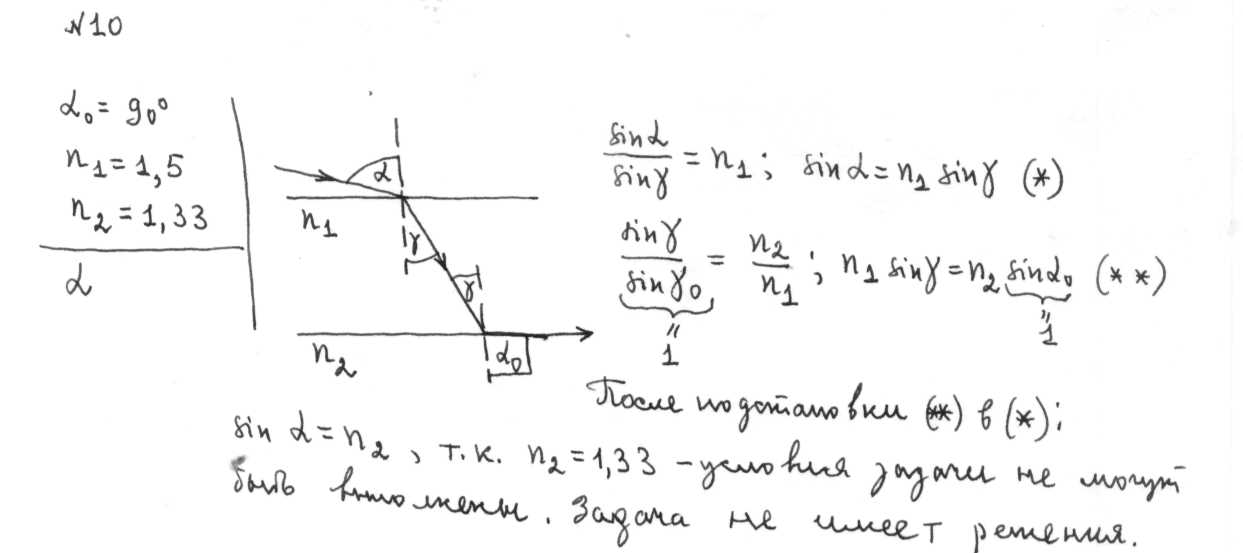 №10
α₀ = 90°
n₁ = 1,5
n₂ = 1,33
α
α
n₁
γ
γ
n₂
α₀
sinα/sinγ = n₁; sinα = n₁ sinγ (*)
sinγ/sinγ₀ = n₂/n₁; n₁ sinγ = n₂ sinα₀ (**)
" 1 " 1
После подстановки (**) в (*):
sin α = n₂, т.к. n₂ = 1,33 – условия задачи не могут
быть выполнены. Задача не имеет решения.